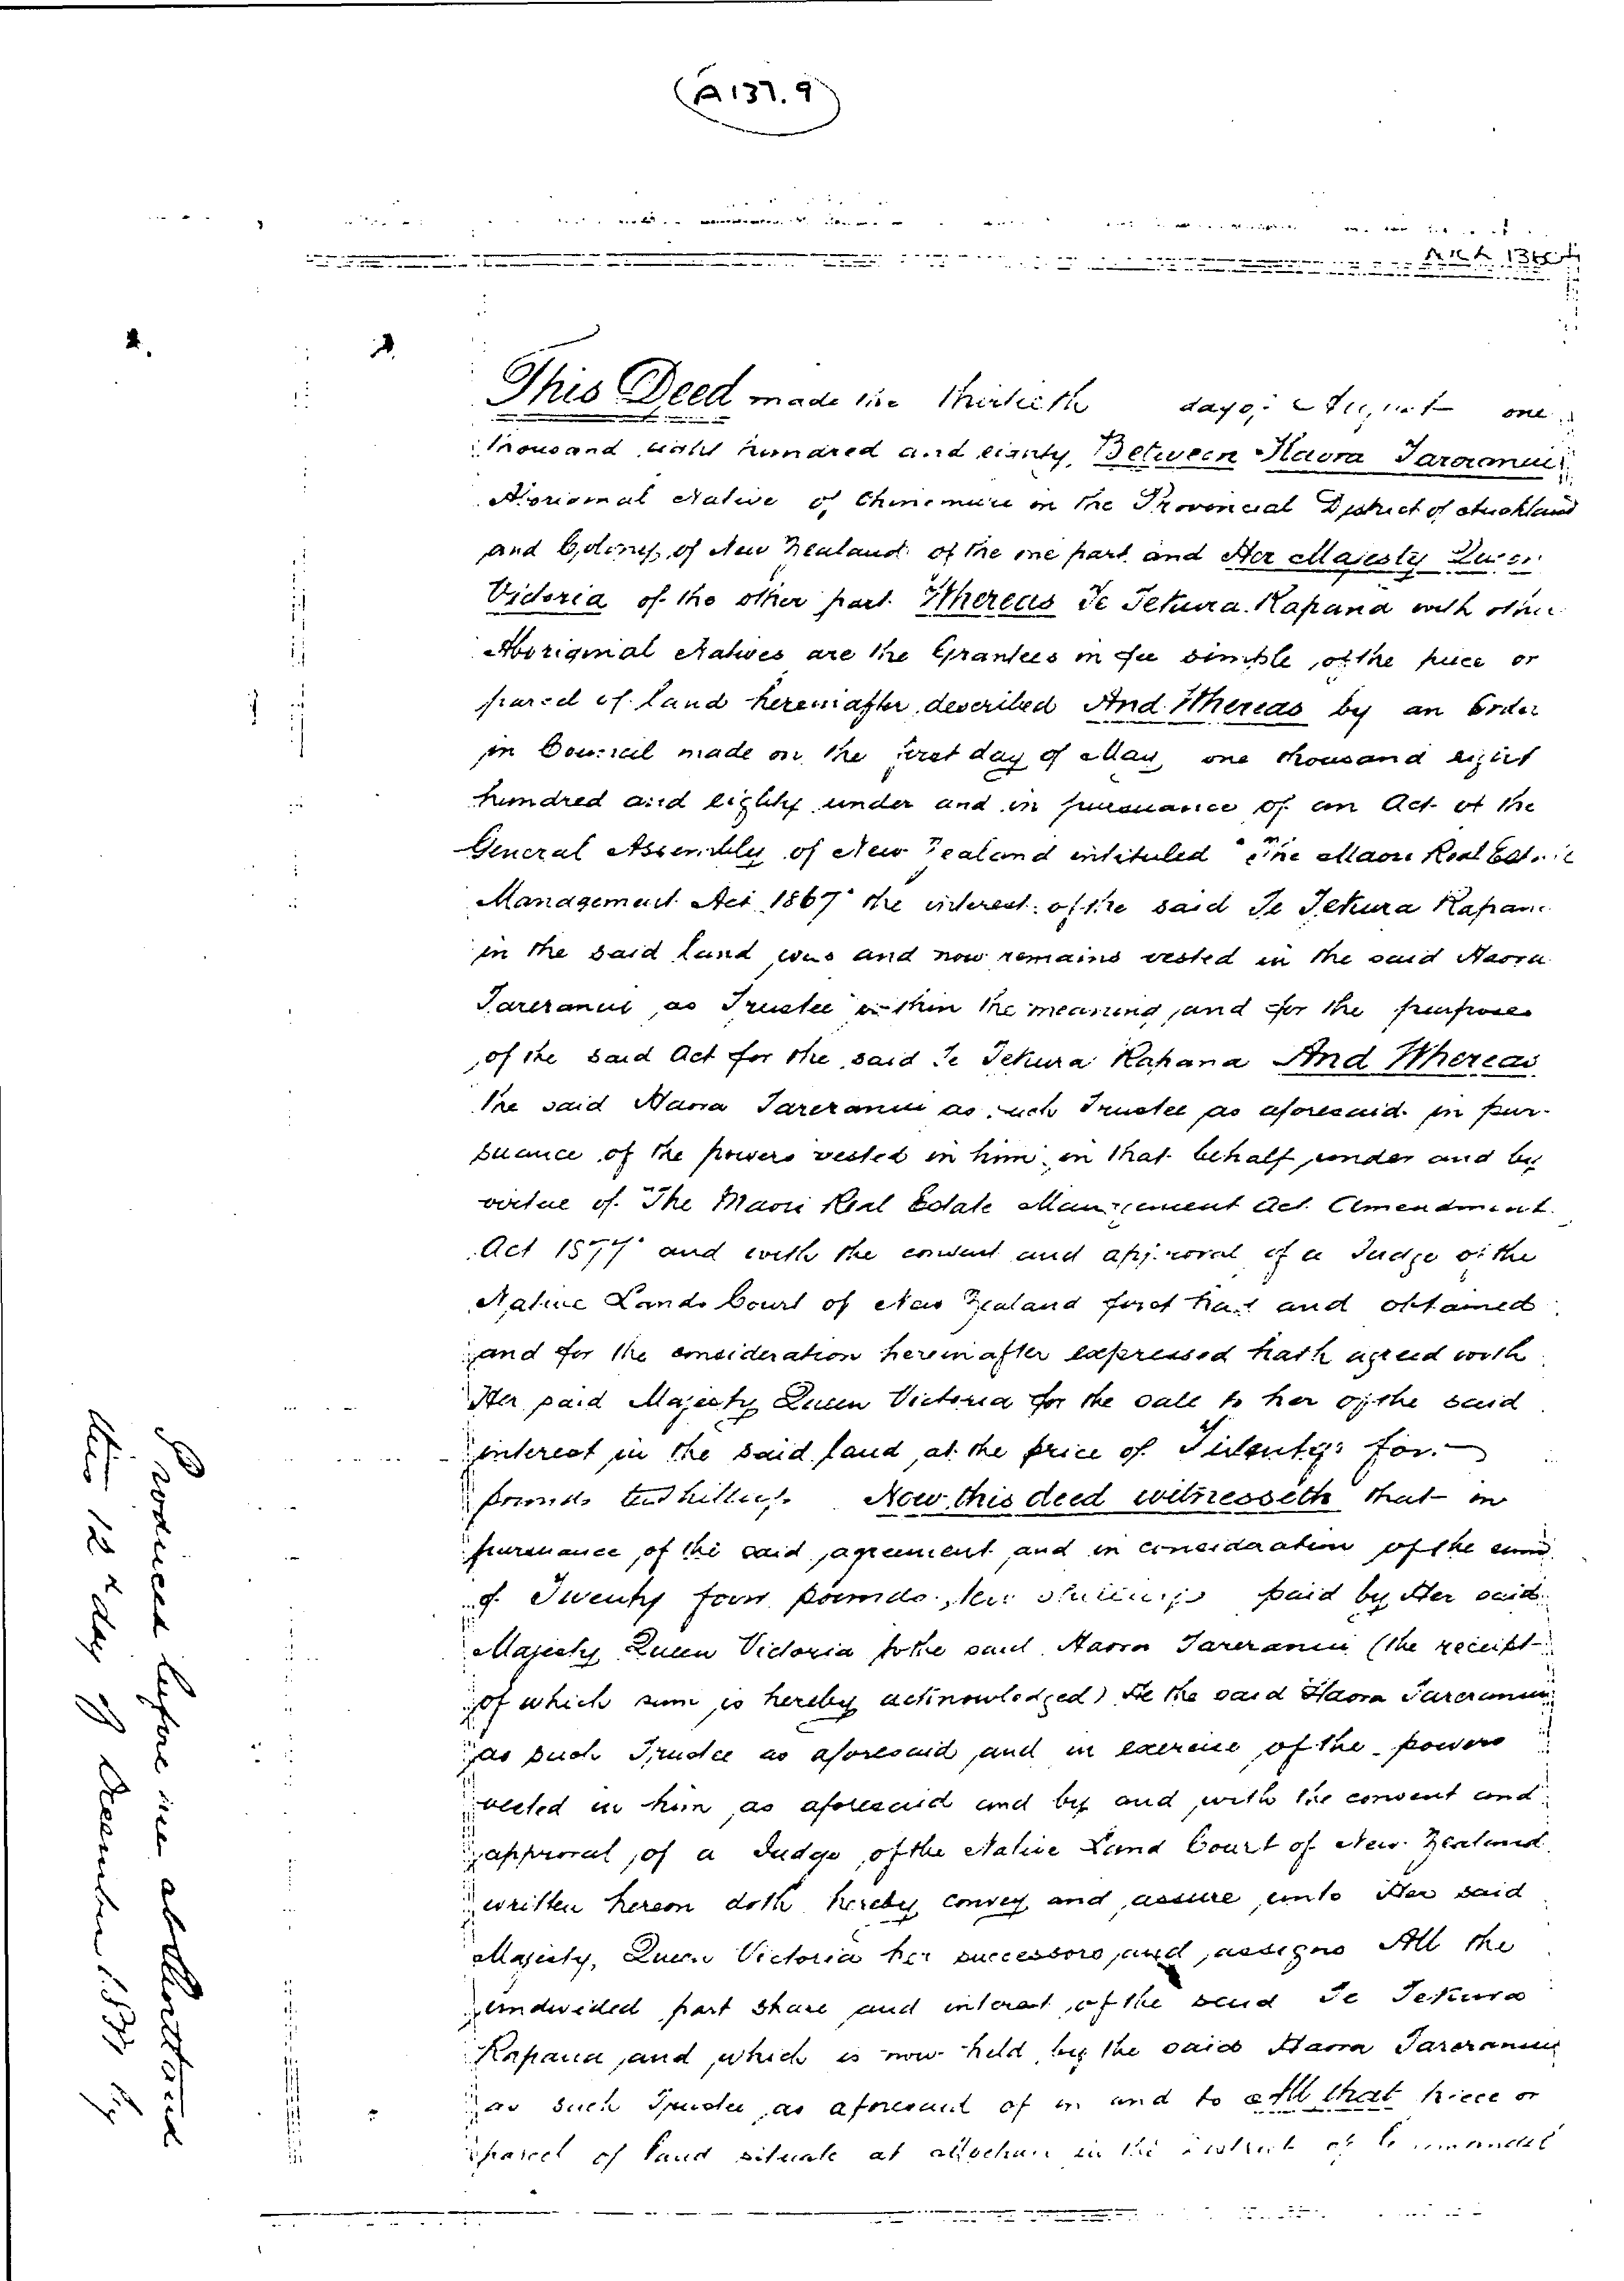 A137.9
This Deed made the thirtieth day of August one
thousand eight hundred and eighty Between Haora Tareranui
Aboriginal Native of Ohinemuri in the Provincial District of Auckland
and Colony of New Zealand of the one part and Her Majesty Queen
Victoria of the other part Whereas Te Tekura Rapana with other
Aboriginal Natives are the Grantees in fee simple of the piece or
parcel of land hereinafter described And Whereas by an Order
in Council made on the first day of May one thousand eight
hundred and eighty under and in pursuance of an Act of the
General Assembly of New Zealand intituled "The Maori Real Estate
Management Act 1867" the interest of the said Te Tekura Rapana
in the said land was and now remains vested in the said Haora
Tareranui as Trustee within the meaning and for the purposes
of the said Act for the said Te Tekura Rapana And Whereas
the said Haora Tareranui as such Trustee as aforesaid in pur-
suance of the powers vested in him in that behalf under and by
virtue of "The Maori Real Estate Management Act Amendment
Act 1877" and with the consent and approval of a Judge of the
Native Lands Court of New Zealand first had and obtained
and for the consideration hereinafter expressed hath agreed with
Her said Majesty Queen Victoria for the sale to her of the said
interest in the said land at the price of Twenty four
pounds ten shillings. Now this deed witnesseth that in
pursuance of the said agreement and in consideration of the sum
of Twenty four pounds ten shillings paid by Her said
Majesty Queen Victoria to the said Haora Tareranui (the receipt
of which sum is hereby acknowledged) He the said Haora Tareranui
as such Trustee as aforesaid and in exercise of the powers
vested in him as aforesaid and by and with the consent and
approval of a Judge of the Native Land Court of New Zealand
written hereon doth hereby convey and assure unto Her said
Majesty, Queen Victoria her successors and assigns All the
undivided part share and interest of the said Te Tekura
Rapana and which is now held by the said Haora Tareranui
as such Trustee as aforesaid of in and to All that piece or
parcel of land situate at in the District of Coromandel
Produced before me at
this 12th day of December